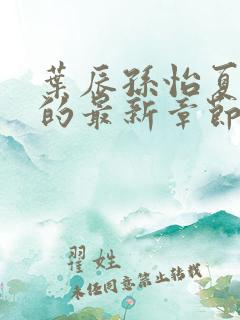 葉辰孫怡夏
的最新章節
翟姓
未经同意禁止转载